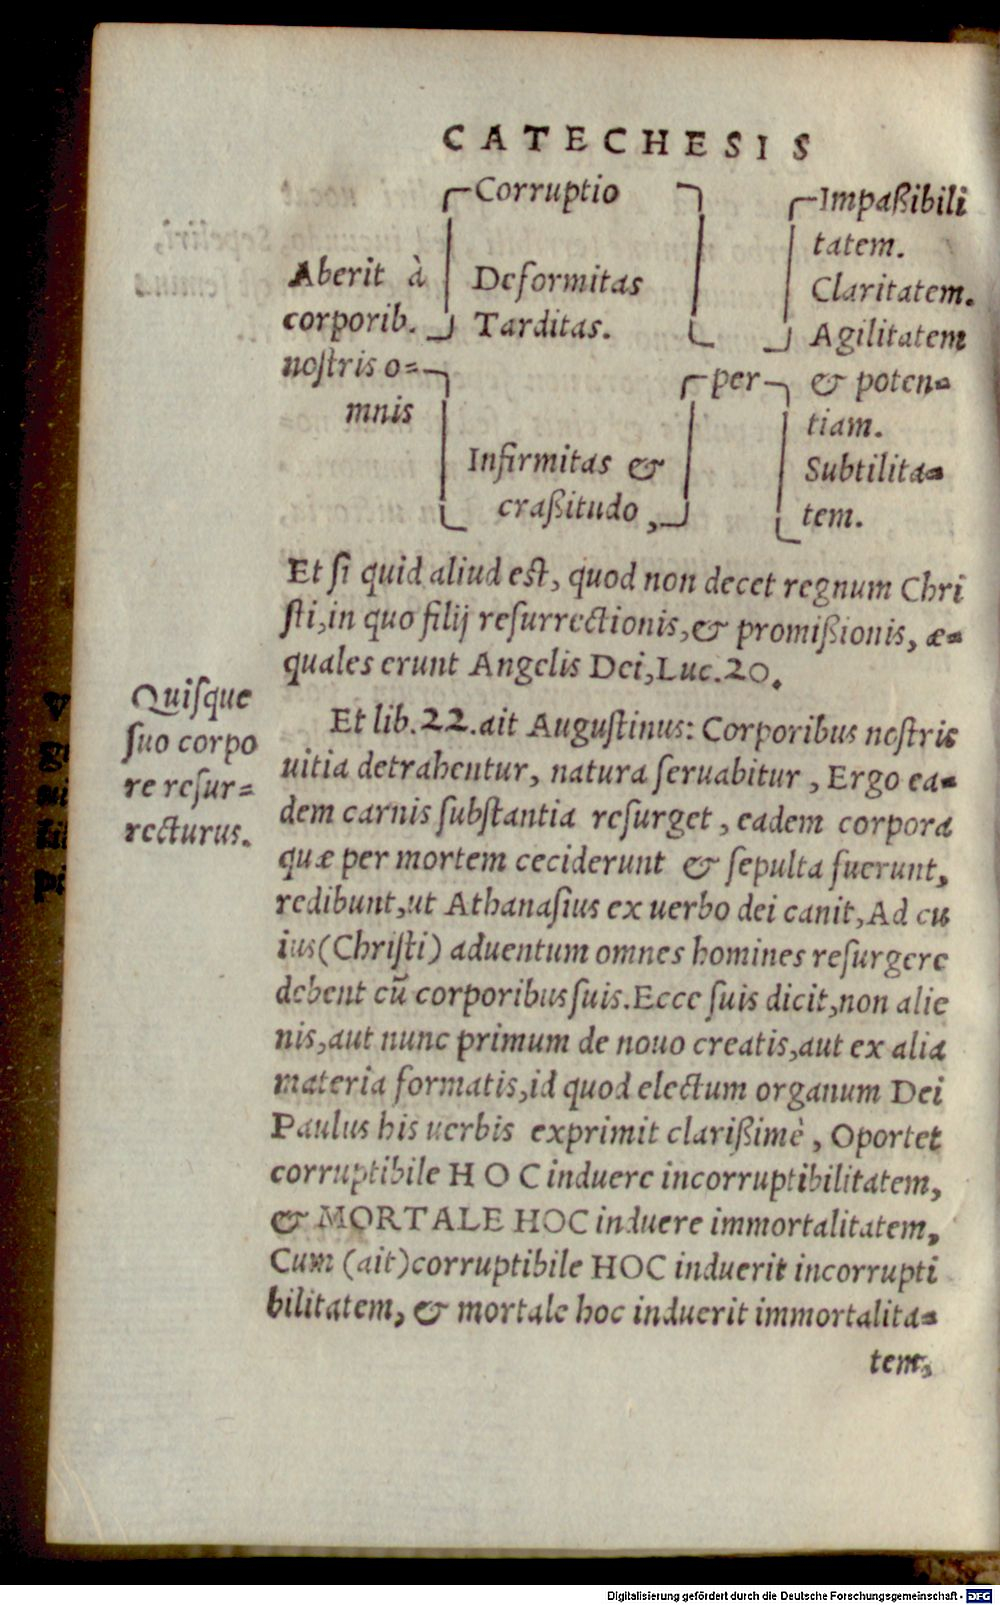 CATECHESIS
Aberit à
corporib.
nostris o=
mnis
Corruptio
Deformitas
Tarditas.
Infirmitas &
craßitudo,
per
Impaßibili
tatem.
Claritatem.
Agilitatem
& poten=
tiam.
Subtilita=
tem.
Et ſi quid aliud est, quod non decet regnum Chri
ſti, in quo filij reſurrectionis, & promißionis, æ=
quales erunt Angelis Dei, Luc. 20.
Quiſque
ſuo corpo
re reſur=
recturus.
Et lib. 22. ait Auguſtinus: Corporibus noſtris
uitia detrahentur, natura ſeruabitur, Ergo ea=
dem carnis ſubſtantia reſurget, eadem corpora
quæ per mortem ceciderunt & ſepulta fuerunt,
redibunt, ut Athanaſius ex uerbo dei canit, Ad cu
ius (Chriſti) aduentum omnes homines reſurgere
debent cū corporibus ſuis. Ecce ſuis dicit, non alie
nis, aut nunc primum de nouo creatis, aut ex alia
materia formatis, id quod electum organum Dei
Paulus his uerbis exprimit clarißimè, Oportet
corruptibile HOC induere incorruptibilitatem,
& MORTALE HOC induere immortalitatem,
Cum (ait) corruptibile HOC induerit incorrupti
bilitatem, & mortale hoc induerit immortalita=
tem,
Digitalisierung gefördert durch die Deutsche Forschungsgemeinschaft - DFG